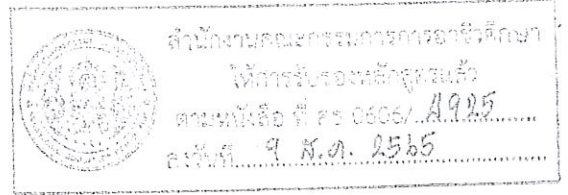 สำนักงานคณะกรรมการการอาชีวศึกษา
ให้การรับรองหลักสูตรแล้ว
ตามหนังสือ ที่ ศธ 0606/ 4925
ลงวันที่ 9 ส.ค. 2565